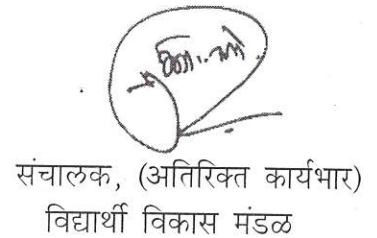 संचालक, (अतिरिक्त कार्यभार)
विद्यार्थी विकास मंडळ